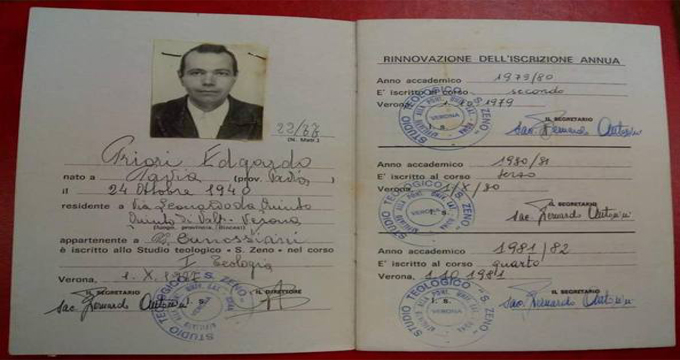 22/67
(N. Matr.)
Priori Edgardo
nato a Pavia (prov. Pavia)
il 24 Ottobre 1940
residente a Via Leonardo da Quinto
Quinto di Valp. Verona
(luogo, provincia, Diocesi)
appartenente a Canossiani
è iscritto allo Studio teologico « S. Zeno » nel corso
I Teologia
Verona, 1. X.
IL SEGRETARIO IL DIRETTORE
sac. Bernardo Antonini
STUDIO TEOLOGICO "S. ZENO"
RINNOVAZIONE DELL'ISCRIZIONE ANNUA
Anno accademico 1979/80
E' iscritto al corso secondo
Verona, 1.10.1979
IL SEGRETARIO
sac. Bernardo Antonini
STUDIO TEOLOGICO "S. ZENO"
VERONA
Anno accademico 1980/81
E' iscritto al corso terzo
Verona, 1/X/80
IL SEGRETARIO
sac. Bernardo Antonini
STUDIO TEOLOGICO "S. ZENO"
VERONA
Anno accademico 1981/82
E' iscritto al corso quarto
Verona, 1.10.1981
IL SEGRETARIO
sac. Bernardo Antonini
STUDIO TEOLOGICO "S. ZENO"
VERONA